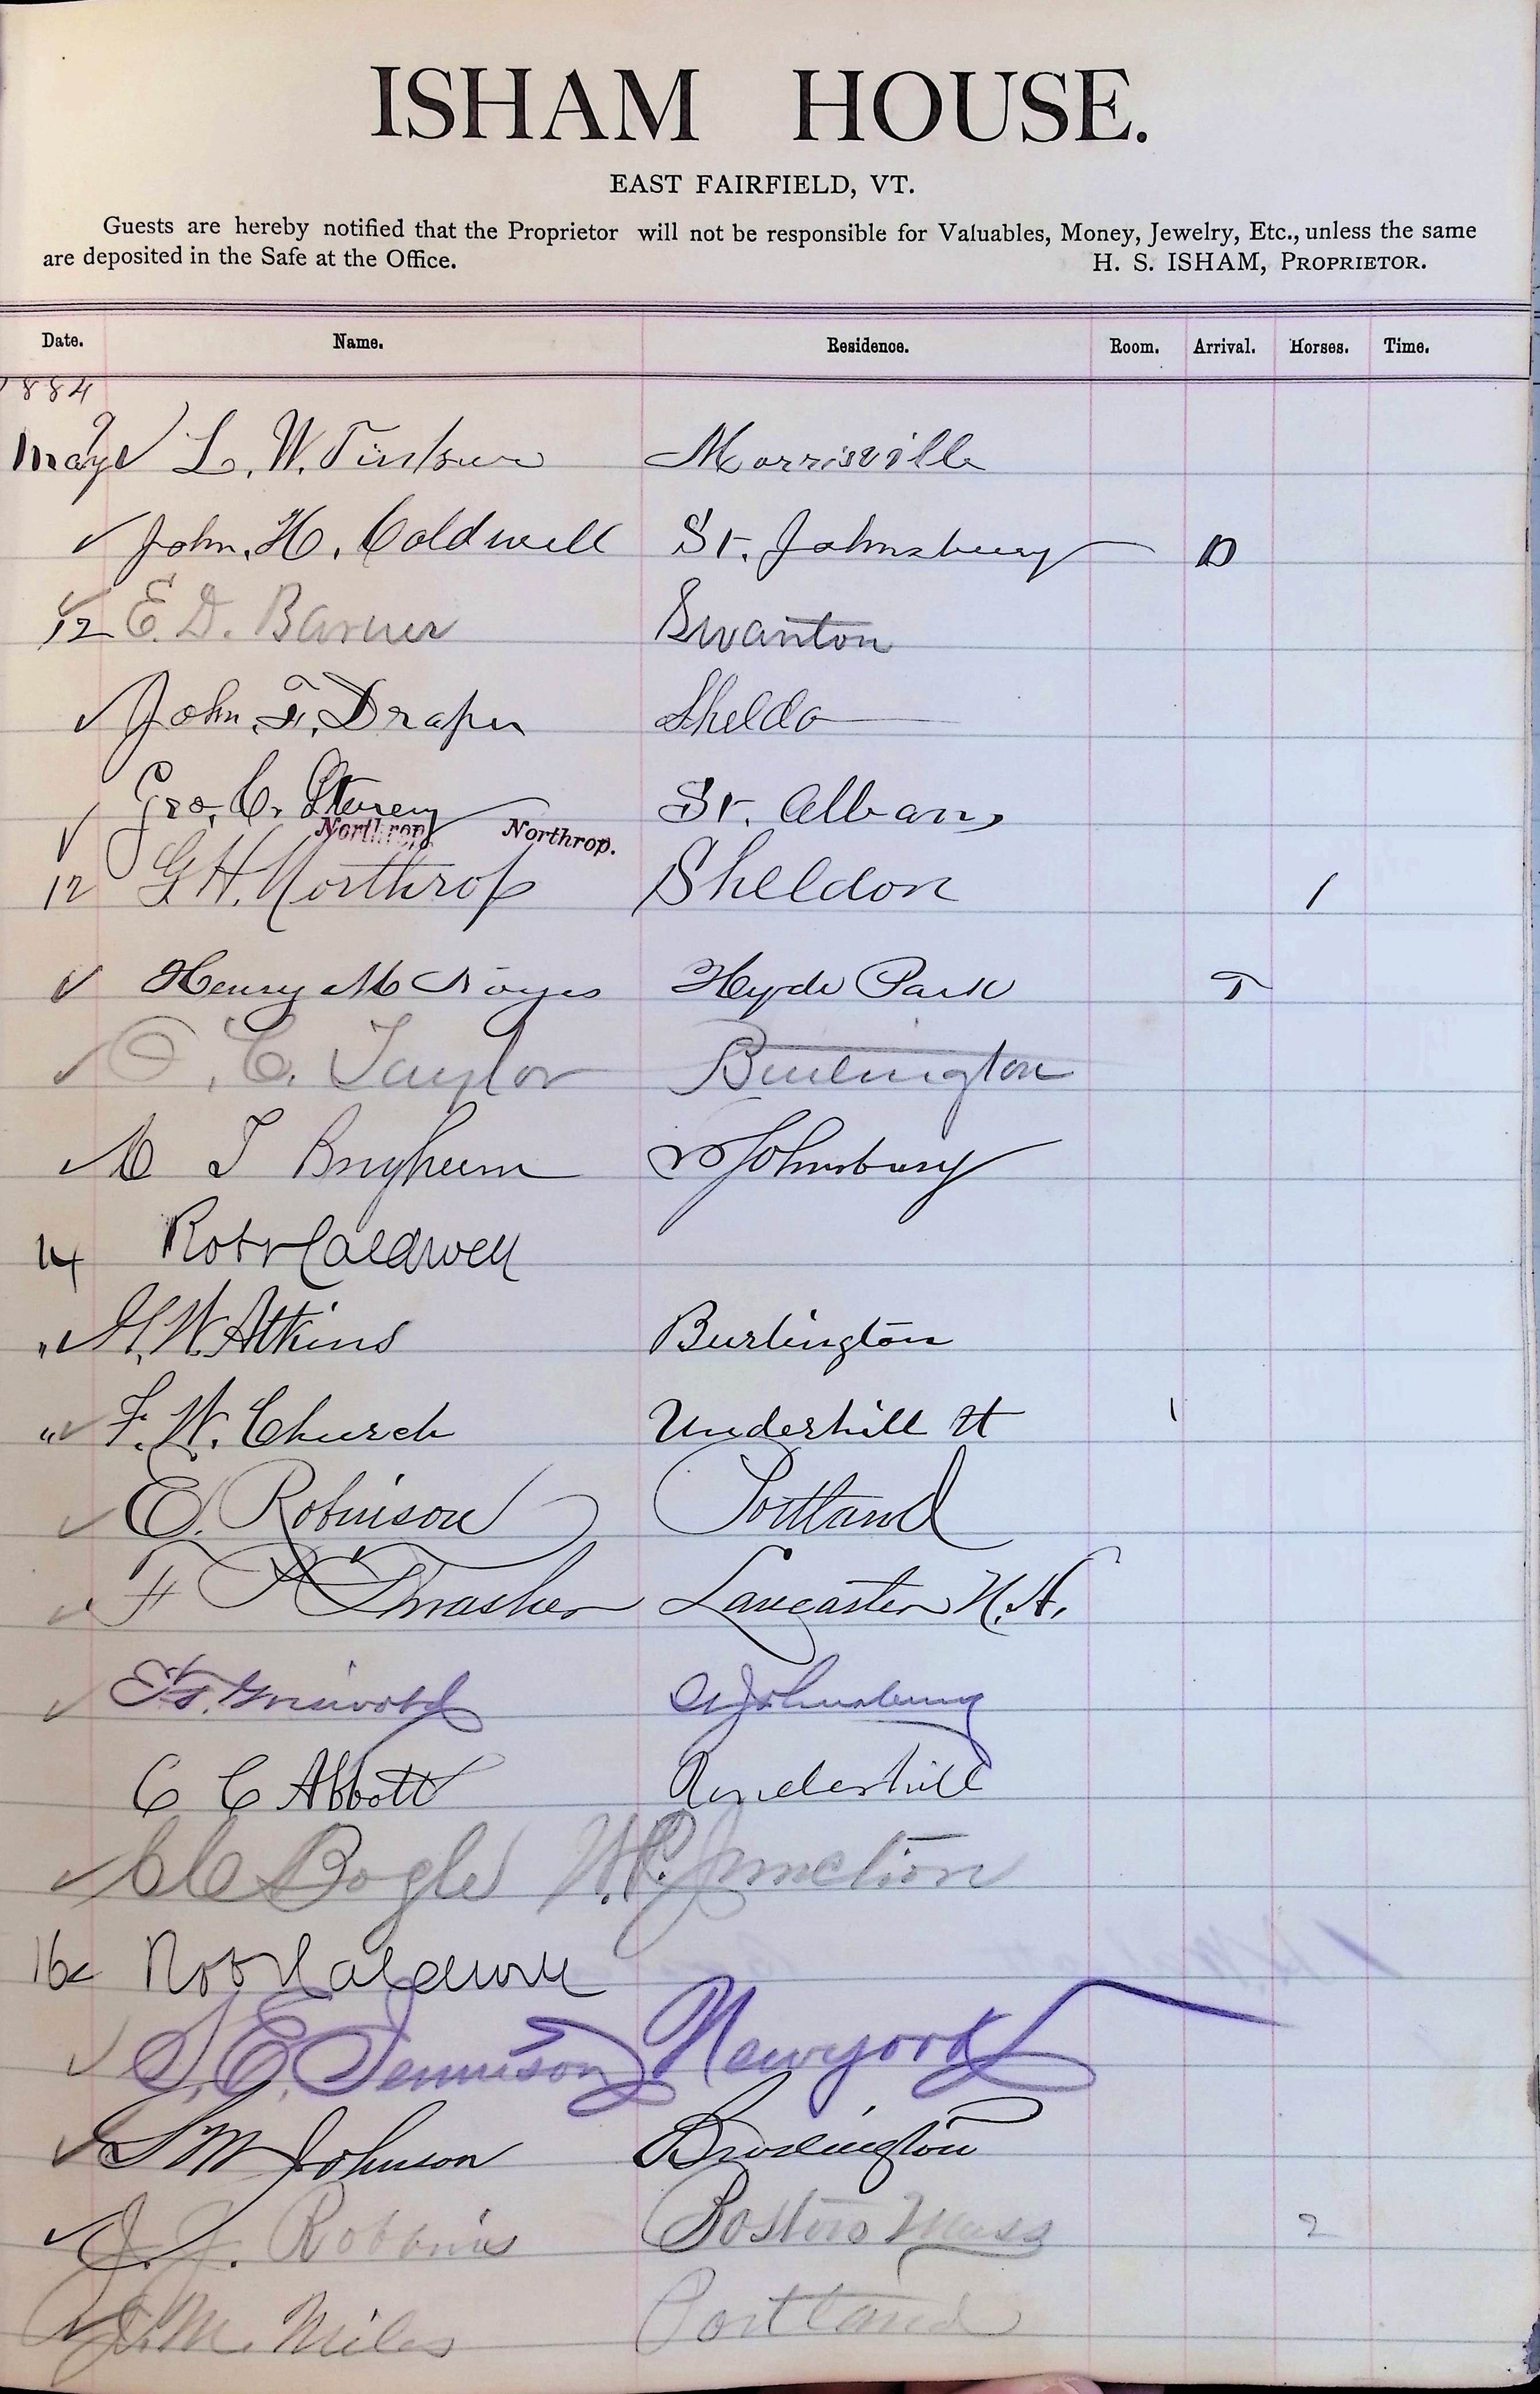 ISHAM HOUSE.
EAST FAIRFIELD, VT.
Guests are hereby notified that the Proprietor will not be responsible for Valuables, Money, Jewelry, Etc., unless the same
are deposited in the Safe at the Office. H. S. ISHAM, PROPRIETOR.
Date. Name. Residence. Room. Arrival. Horses. Time.
1884
May 9 L. W. Morrisville
John. H. Caldwell St. Johnsbury D
12 E. D. Swanton
John. F. Draper Sheldo
Geo. C. St. Albans
Northrop. Northrop.
12 G H. Northrop Sheldon 1
Henry M Noyes Hyde Park T
O. C. Taylor Burlington
T Brigham St Johnsbury
14 Robt Caldwell
" W. Atkins Burlington
" F. W. Church Underhill Vt 1
E. Robinson Portland
F P Thrasher Lancaster N. H.
Griswold St Johnsbury
C C Abbott Underhill
C C Bogle W. R. Junction
16 Robt Caldwell
S. E. Dennison New york
S M Johnson Burlington
J. J. Robbins Boston Mass 2
J. M. Miles Portland